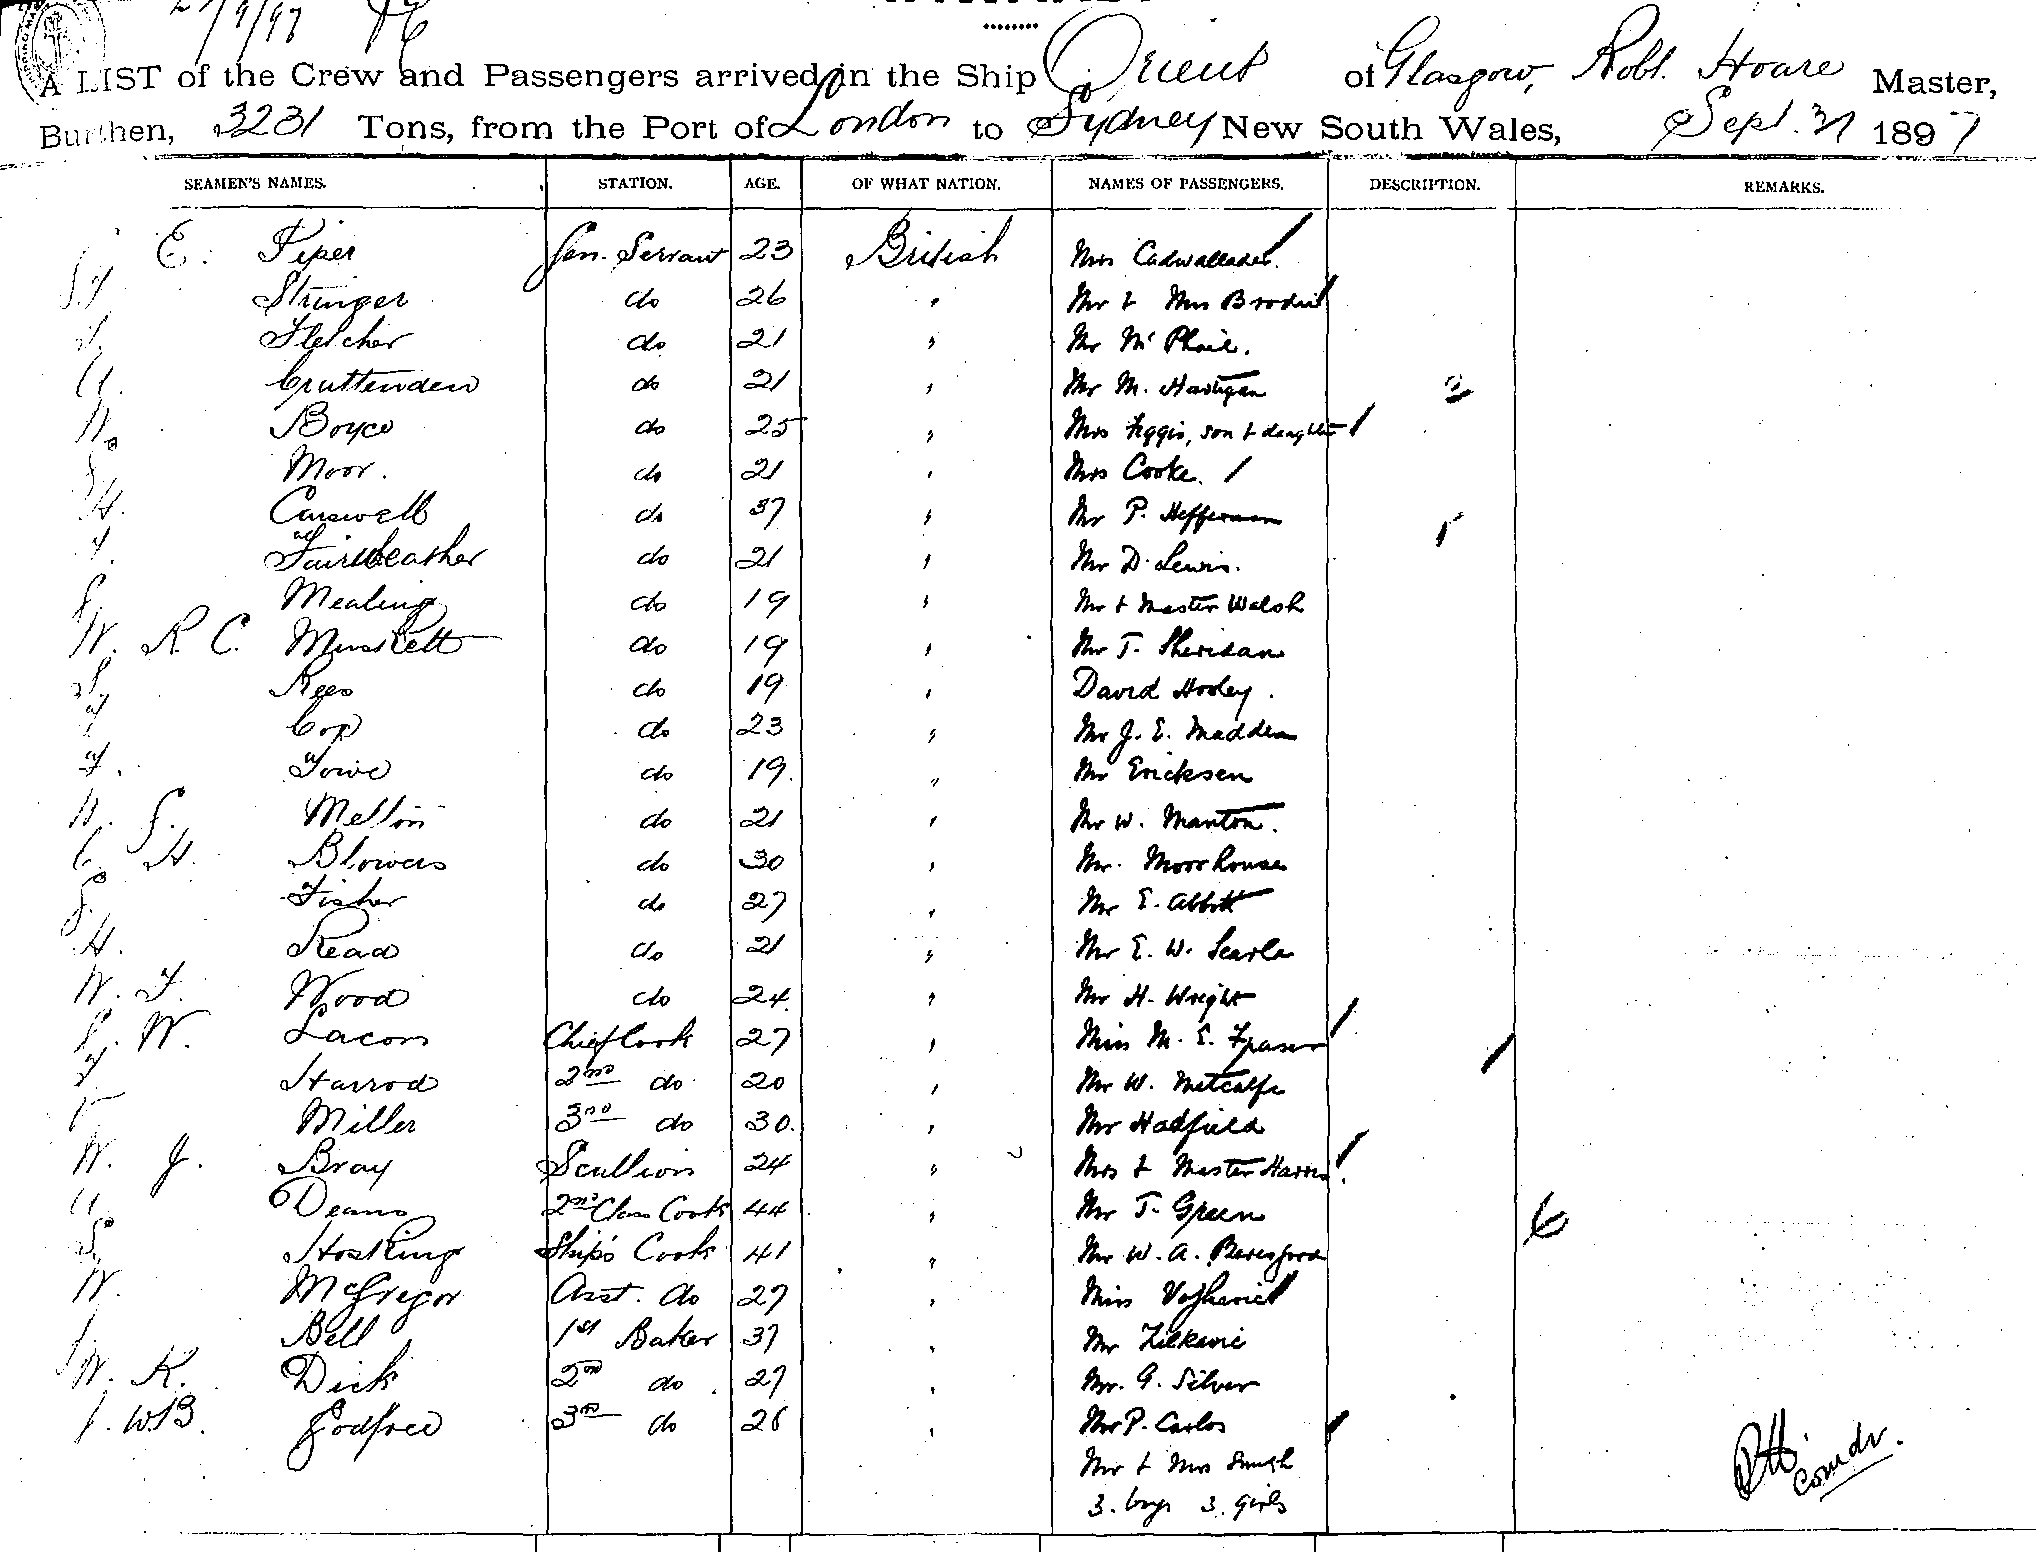 27/9/97
A LIST of the Crew and Passengers arrived in the Ship Orient of Glasgow, Robt. Hoare Master,
Burthen, 3231 Tons, from the Port of London to Sydney New South Wales, Sept. 1897
SEAMEN'S NAMES. STATION. AGE. OF WHAT NATION. NAMES OF PASSENGERS. DESCRIPTION. REMARKS.
E. Piper Gen. Servant 23 British Mrs Cadwallader
Stringer do 26 " Mr & Mrs
Fletcher do 21 " Mr McPhail.
Cruttenden do 21 " Mr M. Hartigan 2
Boyce do 25 " Mrs Figgis, son & daughter
Moor. do 21 " Mrs Cooke.
H. Carswell do 37 " Mr P. Heffernan
Fairweather do 21 " Mr D. Lewis.
Mealing do 19 " Mr & Master Walsh
W. R. C. Muskett do 19 " Mr T. Sheridan
Rees do 19 " David Hooley.
Cop do 23 " Mr J. E. Madden
do 19. " Mr Ericksen
Mellon do 21 " Mr W. Manton.
C. H. Blowers do 30 " Mr. Moorhouse
Fisher do 27 " Mr E. Abbott
H. Read do 21 " Mr E. W. Searle
W. F. Wood do 24. " Mr H. Wright
W. Lacon Chief Cook 27 " Miss M. E. Fraser
Harrod 2nd do 20 " Mr W. Metcalfe
Miller 3rd do 30. " Mr Hadfield
W. J. Bray Scullion 24 " Mrs & Master Harris
Deans 2nd Class Cook 44 " Mr T. Green 6
Hosking Ship's Cook 41 " Mr W. A. Beresford
W. McGregor Asst. do 27 " Miss
Bell 1st Baker 37 " Mr
W. K. Dick 2nd do 27 " Mr. G. Silver
J. W.B. Godfree 3rd do 26 " Mr P. Carlos
Mr & Mrs
3. boys 3. girls
RH. Comdr.